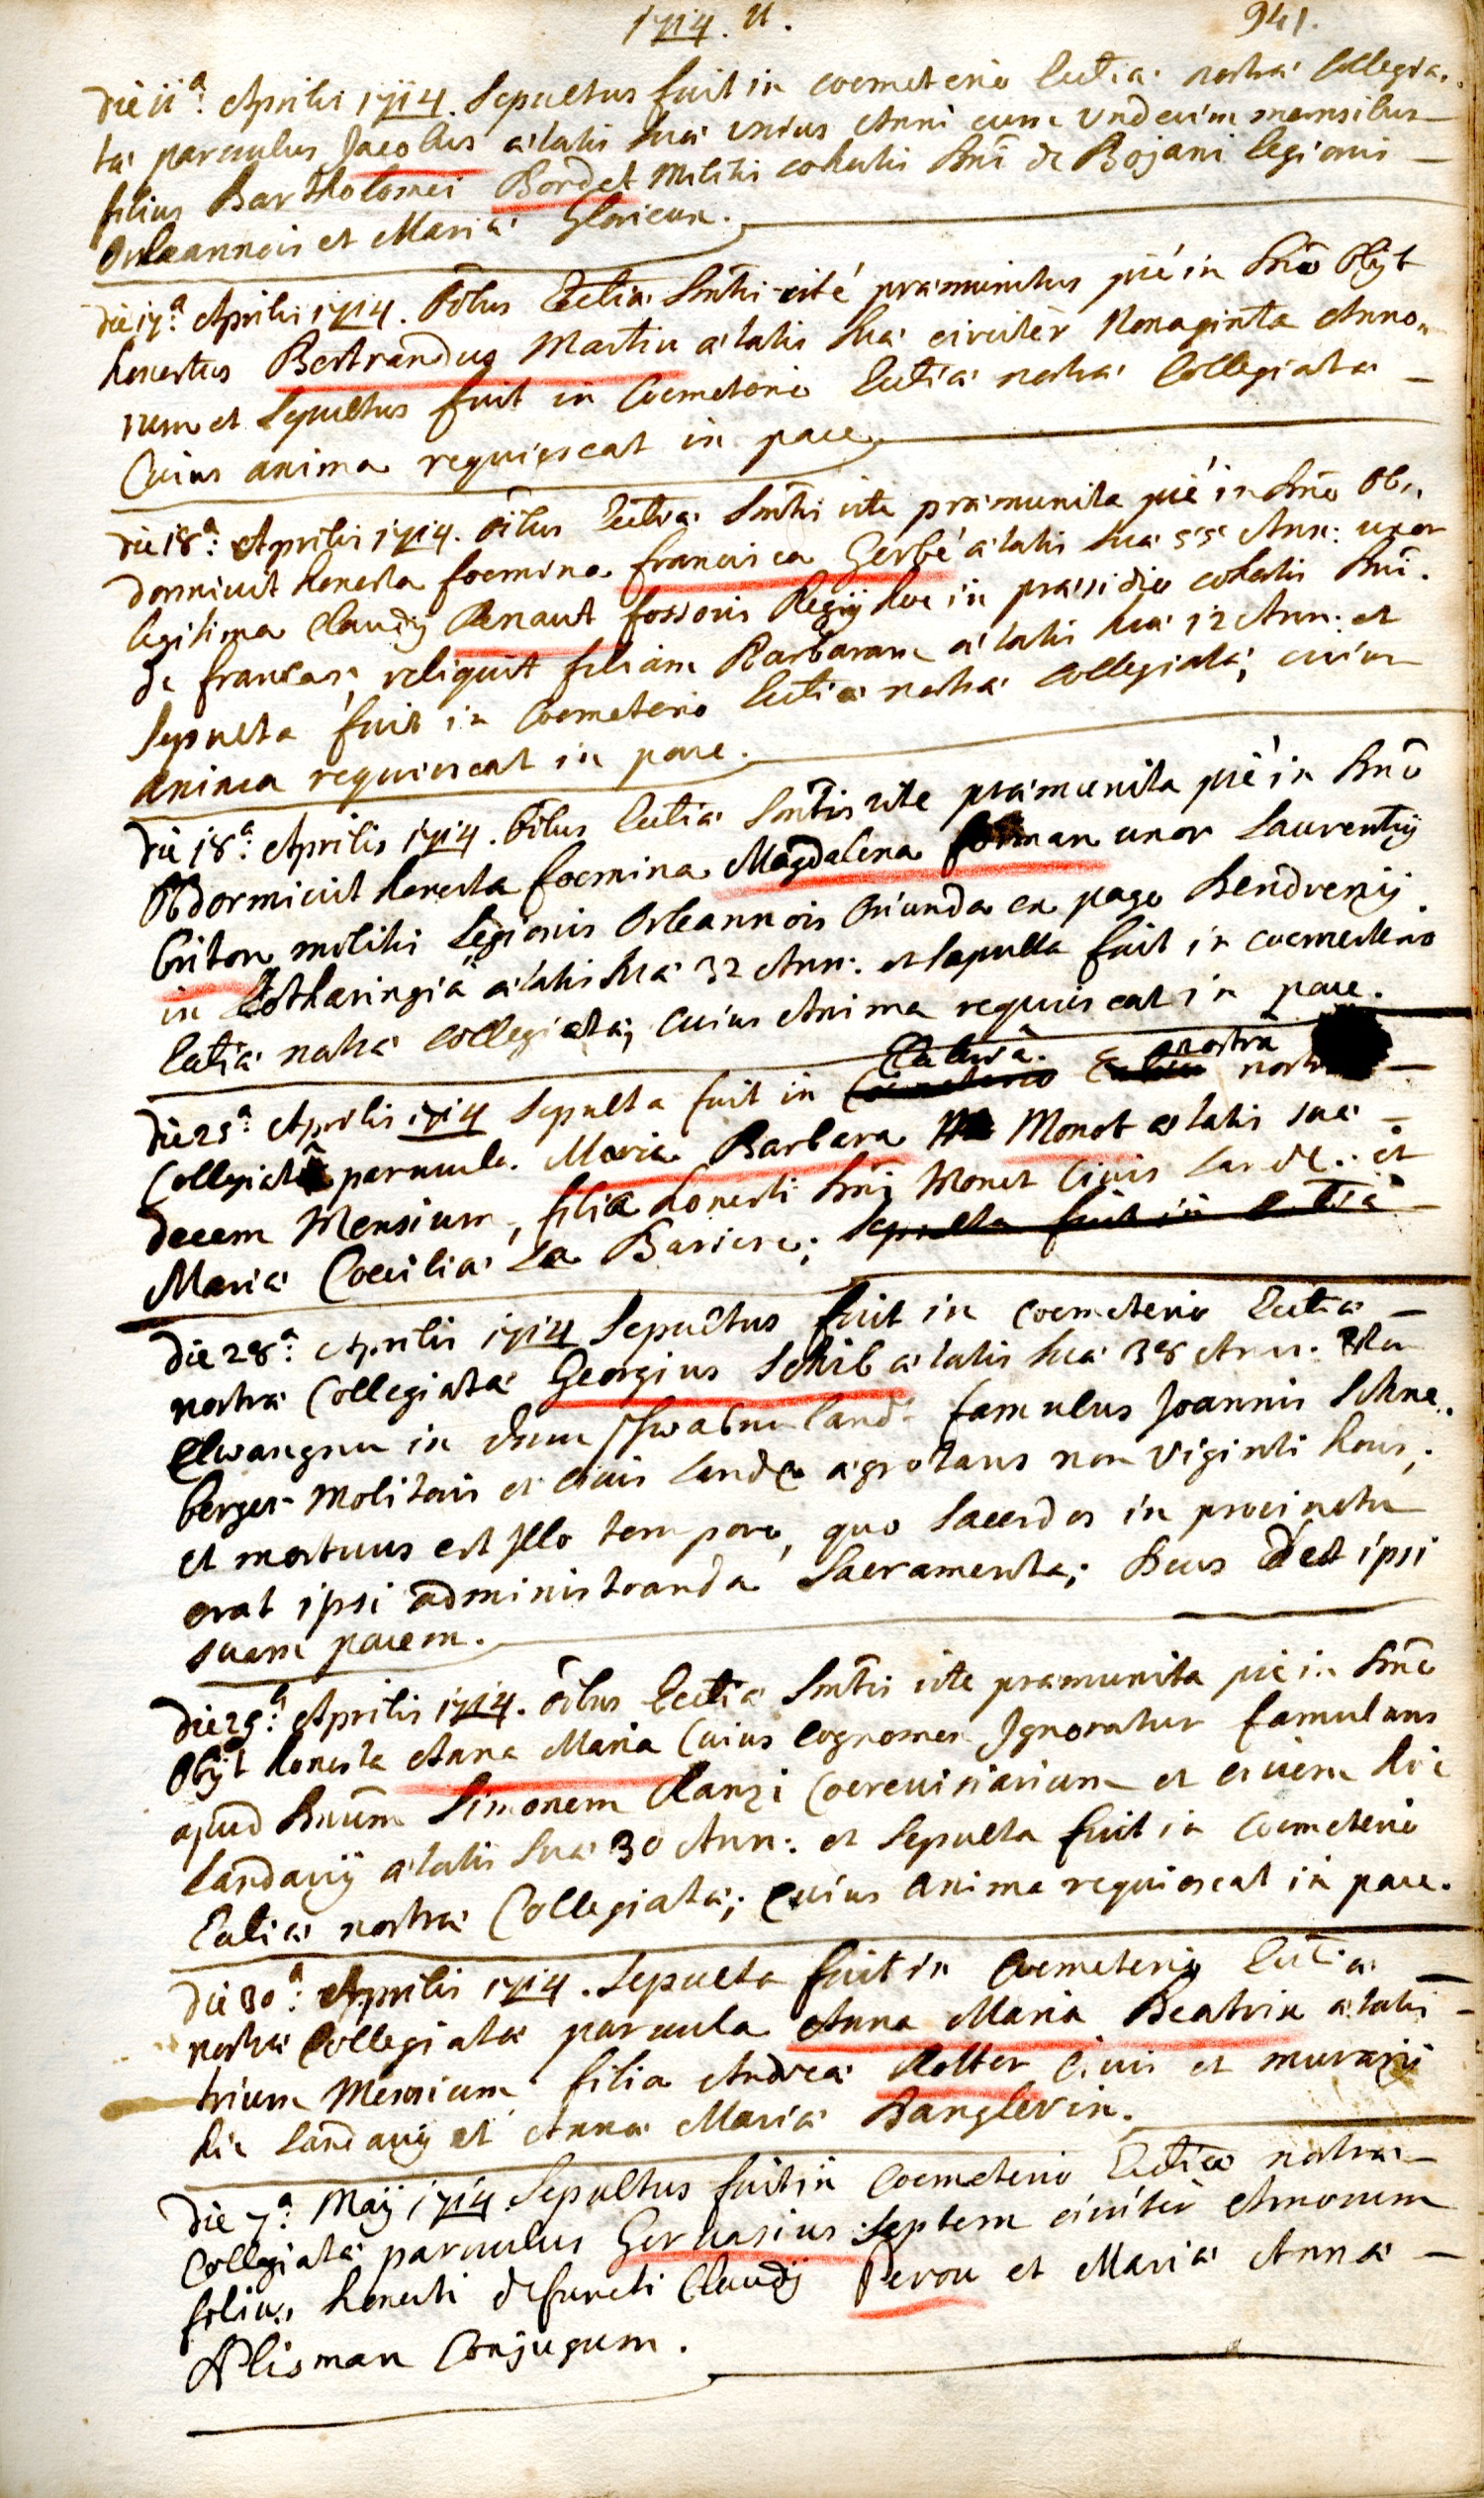 1714. 11. 941.
Die 11ª: Aprilis 1714. Sepultus fuit in coemeterio Ecctiæ nostræ Collegia-
tæ parvulus Jacobus ætatis suæ unius Anni cum undecim mensibus
filius Bartholomei Bordet militis cohortis Dni de Bojani legionis
Orleannois et Mariæ Glorieux.
Die 17ª: Aprilis 1714. Oibus Ecctiæ Smtis rité præmunitus pié in Dno Obijt
honestus Bertrandus Martin ætatis suæ circiter Nonaginta Anno-
rum et Sepultus fuit in Coemeterio Ecctiæ nostræ Collegiatæ
Cuius anima requiescat in pace.
Die 18ª: Aprilis 1714. Oibus Ecctiæ Smtis rite præmunita pié in Dno Ob-
dormivit honesta foemina francisca Gerbé ætatis suæ 55 Ann: uxor
legitima Claudij Renaut fossoris Regij hoc in præsidio cohortis Dni
de francas; reliquit filiam Barbaram ætatis suæ 12 Ann: et
Sepulta fuit in Coemeterio Ecctiæ nostræ Collegiatæ; cuius
Anima requiescat in pace.
Die 18ª: Aprilis 1714. Oibus Ecctiæ Smtis rite præmunita pié in Dno
Obdormivit honesta foemina Magdalena forman uxor Laurentij
briton militis Legionis Orleannois Oriunda ex pago
in Lotharingiâ ætatis suæ 32 Ann: et Sepulta fuit in coemeterio
Ecctiæ nostræ Collegiatæ; cuius Anima requiescat in pace.
Ecclesiâ. nostra
Die 25ª Aprilis 1714 Sepulta fuit in Coemeterio Ecctiæ nostræ
Collegiatâ parvula Maria Barbara Monot ætatis suæ
decem Mensium, filia honesti Dni Monet Civis Landæ. et
Mariæ Coeciliæ La Bariere; Sepulta fuit in Ecctiâ
Die 28ª: Aprilis 1714 Sepultus fuit in coemeterio Ecctiæ
nostræ Collegiatæ Georgius Schib ætatis suæ 38 Ann.
Elwangen in dem schwaben land famulus Joannis Schne-
berger Molitoris et Civis Landæ ægrotans non viginti horis;
et mortuus est Illo tempore, quo Sacerdos in procinctu
erat ipsi administranda Sacramenta; Deus det ipsi
suam pacem.
Die 29ª: Aprilis 1714. Oibus Ecctiæ Smtis rite præmunita pie in Dno
Obijt honesta Anna Maria Cuius Cognomen Ignoratur famulans
apud Dnum Simonem Ranzi Coerevisiarium et civem hic
Landavij ætatis suæ 30 Ann: et Sepulta fuit in Coemeterio
Ecctiæ nostræ Collegiatæ; Cuius Anima requiescat in pace.
Die 30ª: Aprilis 1714. Sepulta fuit in Coemeterio Ecctiæ
nostræ Collegiatæ parvula Anna Maria Beatrix ætatis
trium Mensium filia Andreæ Rolter Civis et murarij
hic Landavij et Anna Mariæ Danglerin.
Die 7ª: Maij 1714 Sepultus fuit in Coemeterio Ecctiæ nostræ
Collegiatæ parvulus Gervasius Septem circiter Annorum
filius honesti defuncti Claudij Perou et Mariæ Annæ
Alisman Conjugum.